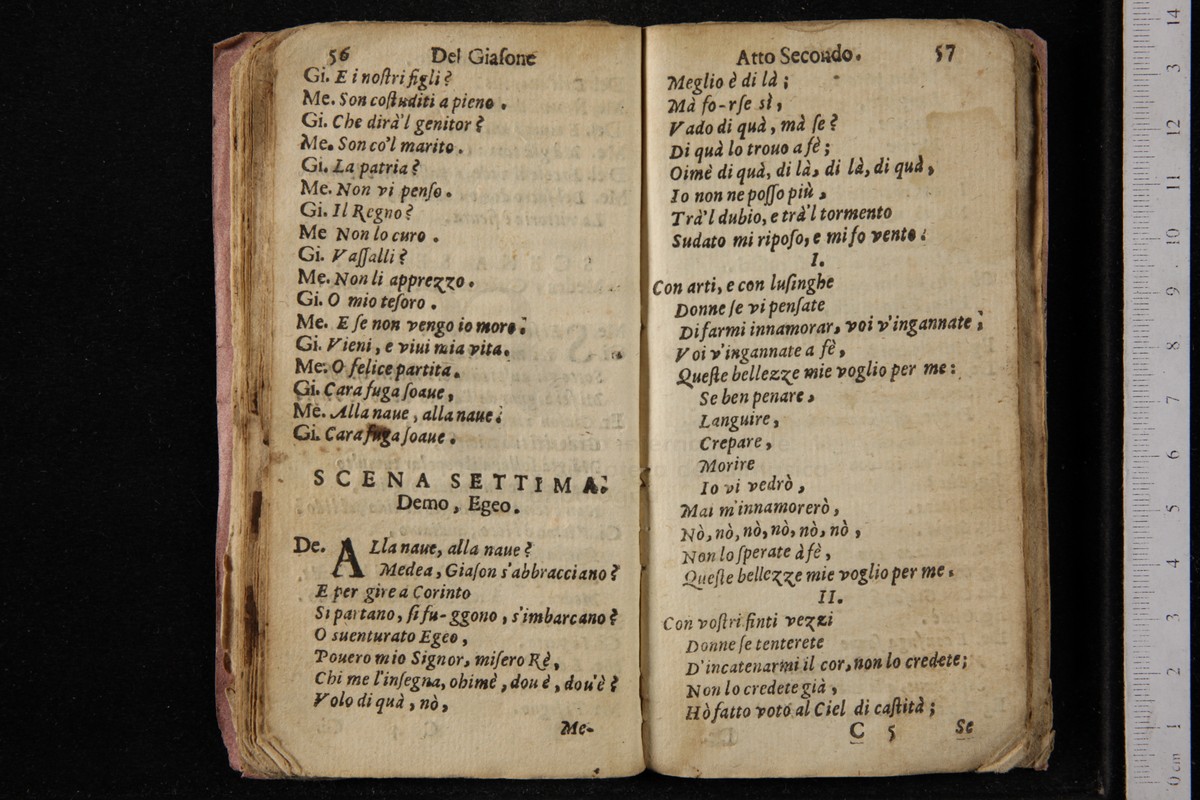 56 Del Giaſone
Gi. E i noſtri figli?
Me. Son coſtuditi a pieno.
Gi. Che dirà'l genitor?
Me. Son co'l marito.
Gi. La patria?
Me. Non vi penſo.
Gi. Il Regno?
Me Non lo curo.
Gi. Vaſſalli?
Me. Non li apprezzo.
Gi. O mio teſoro.
Me. E ſe non vengo io moro:
Gi. Vieni, e viui mia vita.
Me. O felice partita.
Gi. Cara fuga ſoaue,
Me. Alla naue, alla naue:
Gi. Cara fuga ſoaue.
SCENA SETTIMA.
Demo, Egeo.
De. ALla naue, alla naue?
Medea, Giaſon s'abbracciano?
E per gire a Corinto
Si partano, ſi fu-ggono, s'imbarcano?
O suenturato Egeo,
Pouero mio Signor, miſero Rè,
Chi me l'inſegna, ohimè, dou è, dou'è?
Volo di quà, nò,
Me-
Atto Secondo. 57
Meglio è di là;
Mà fo-rſe sì,
Vado di quà, mà ſe?
Di quà lo trouo a fè;
Oimè di quà, di là, di là, di quà,
Io non ne poſſo più,
Trà'l dubio, e trà'l tormento
Sudato mi ripoſo, e mi fo vento:
I.
Con arti, e con luſinghe
Donne ſe vi penſate
Di farmi innamorar, voi v'ingannate;
Voi v'ingannate a fè,
Queſte bellezze mie voglio per me:
Se ben penare,
Languire,
Crepare,
Morire
Io vi vedrò,
Mai m'innamorerò,
Nò, nò, nò, nò, nò, nò,
Non lo ſperate à fè,
Queſte bellezze mie voglio per me.
II.
Con voſtri finti vezzi
Donne ſe tenterete
D'incatenarmi il cor, non lo credete;
Non lo credete già,
Hò fatto voto al Ciel di caſtità;
C 5 Se
14
3
12
11
10
9
8
7
6
5
4
3
2
1
0 cm